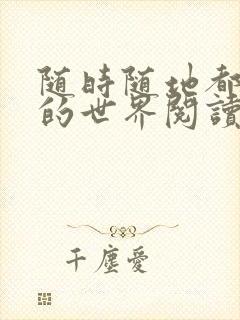 随時随地都
的世界閱讀
千塵愛